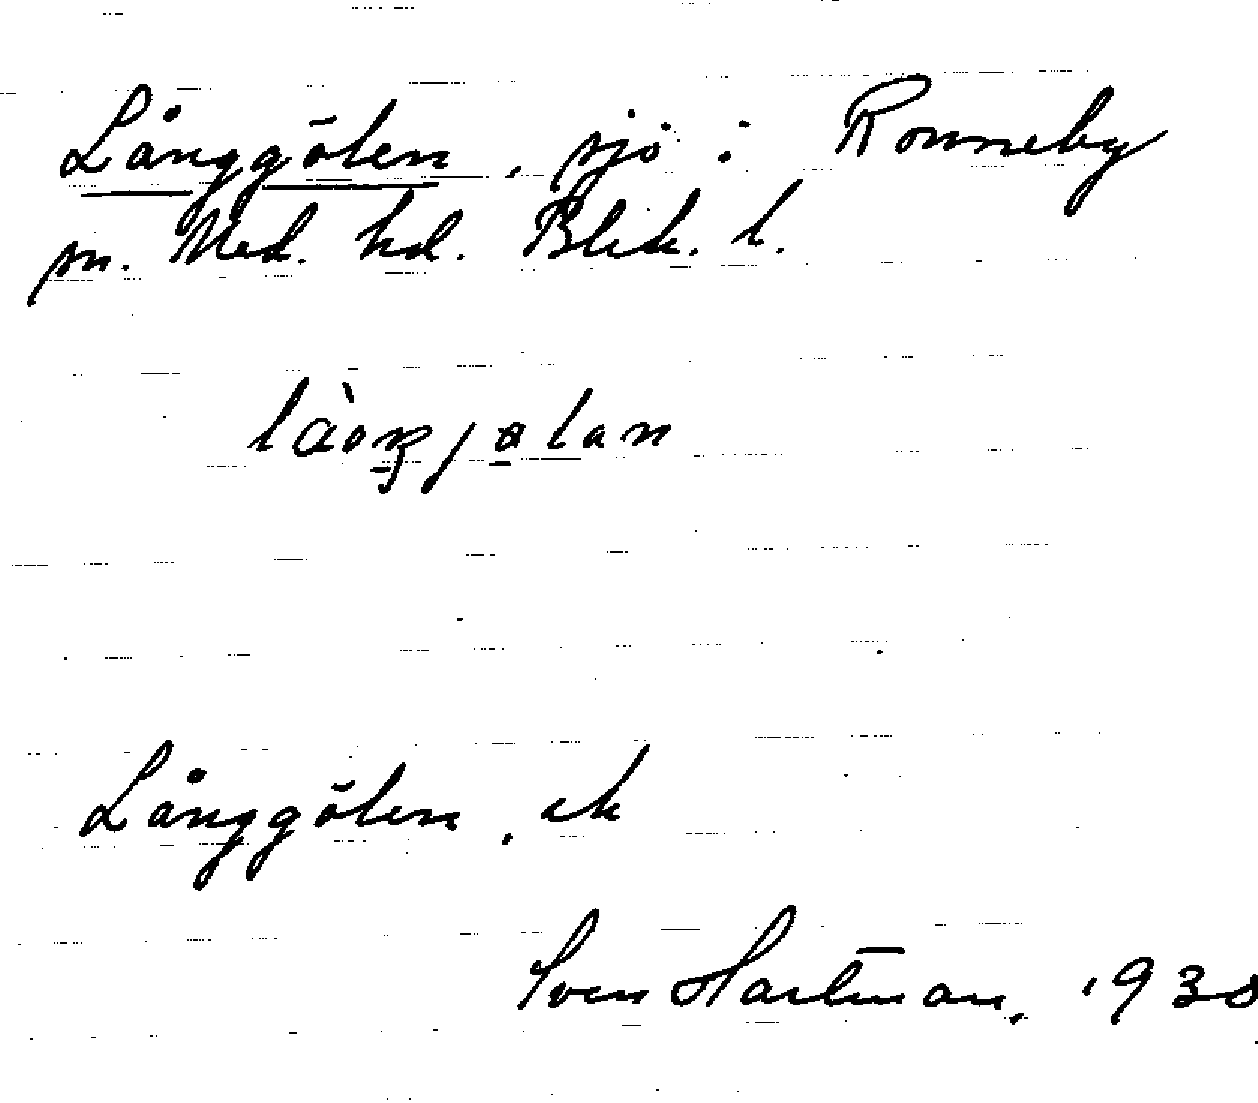 Långgölen, sjö i Ronneby
sn. Med. hd. Blek. l.
Långgölen, ek
Sven Hartman, 1938